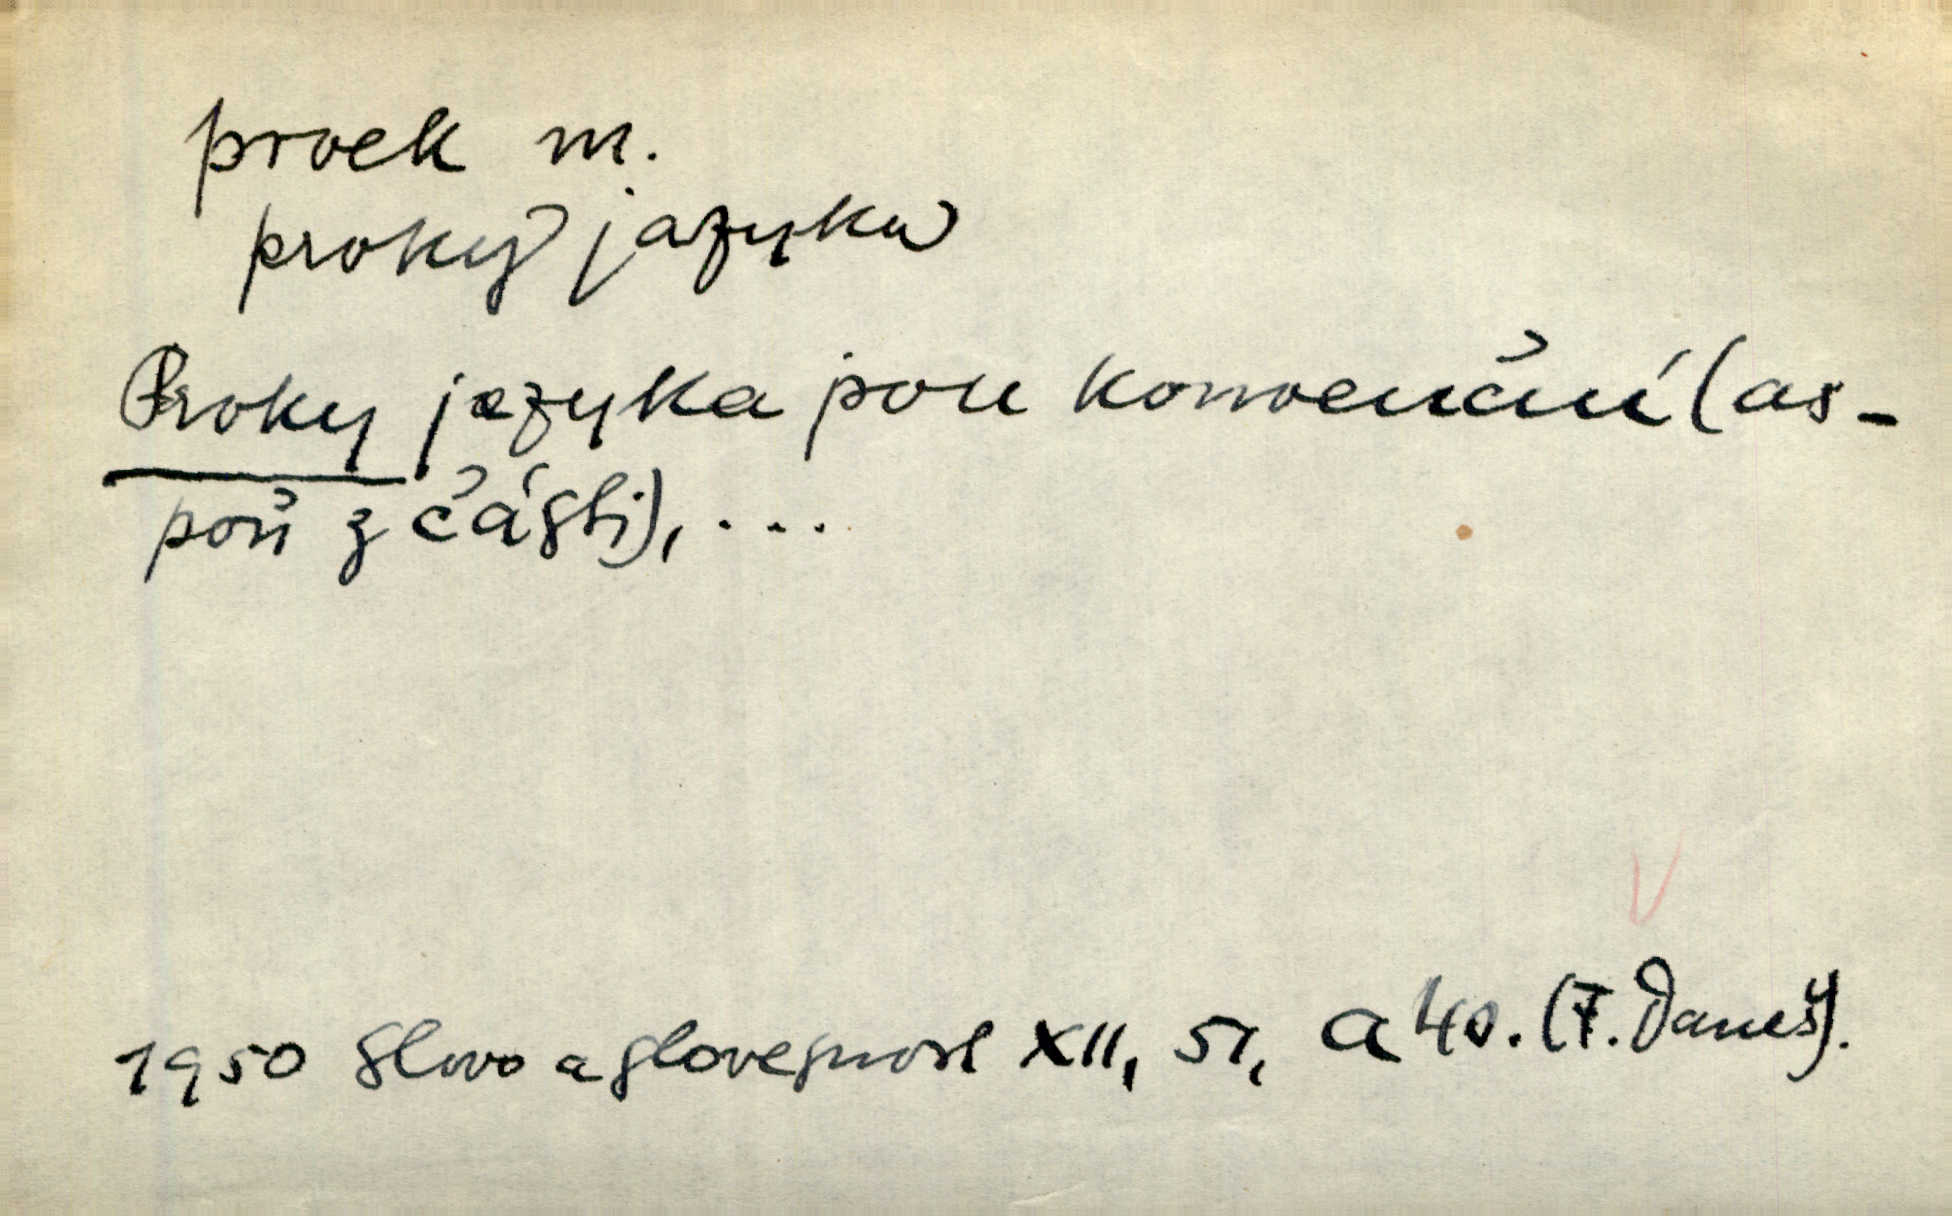 proek m.
proky jazyka
Proky jazyka jsou konvenční (as-
poň z části), ....
1950 Slovo a slovesnost XII, 51, a 40. (F. Daneš).